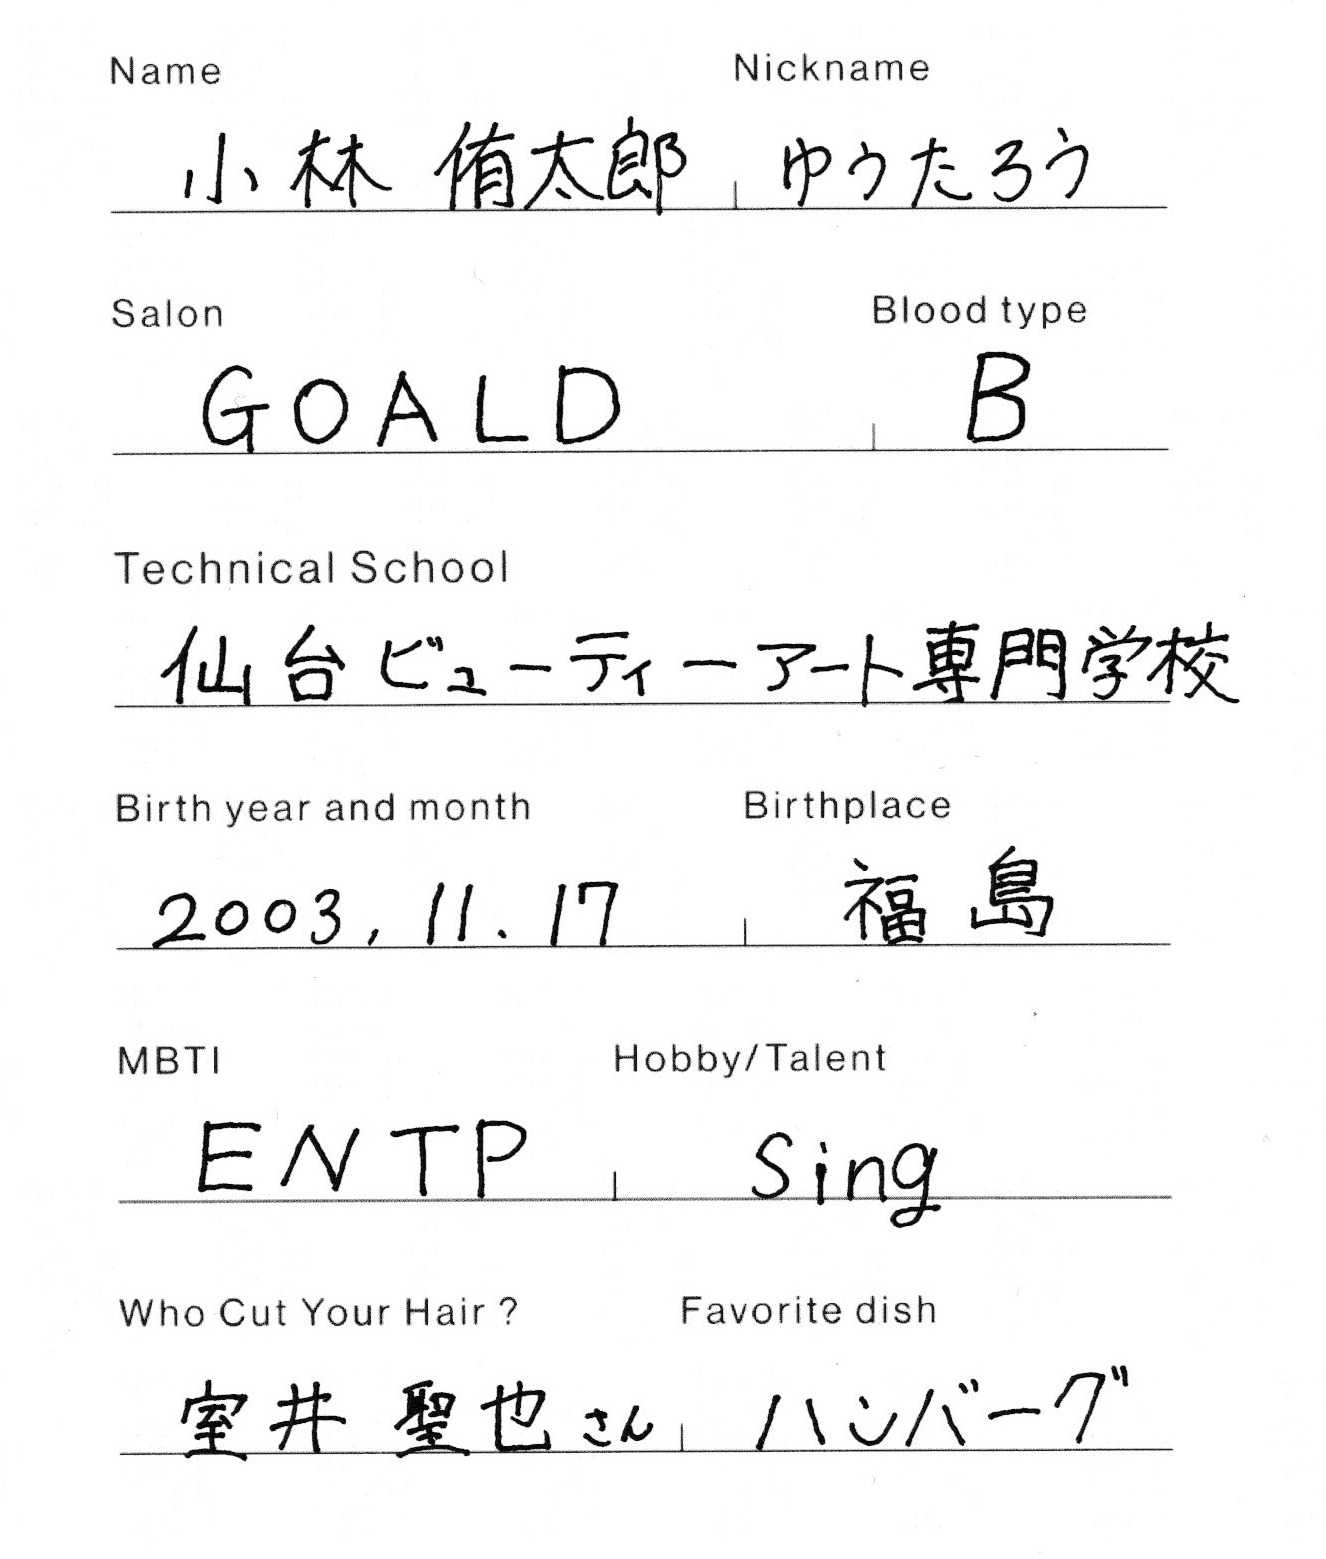 Name Nickname
小林 侑太郎 ゆうたろう
Salon Blood type
GOALD B
Technical School
仙台ビューティーアート専門学校
Birth year and month Birthplace
2003, 11. 17 福島
MBTI Hobby/Talent
ENTP Sing
Who Cut Your Hair ? Favorite dish
室井 聖也さん ハンバーグ